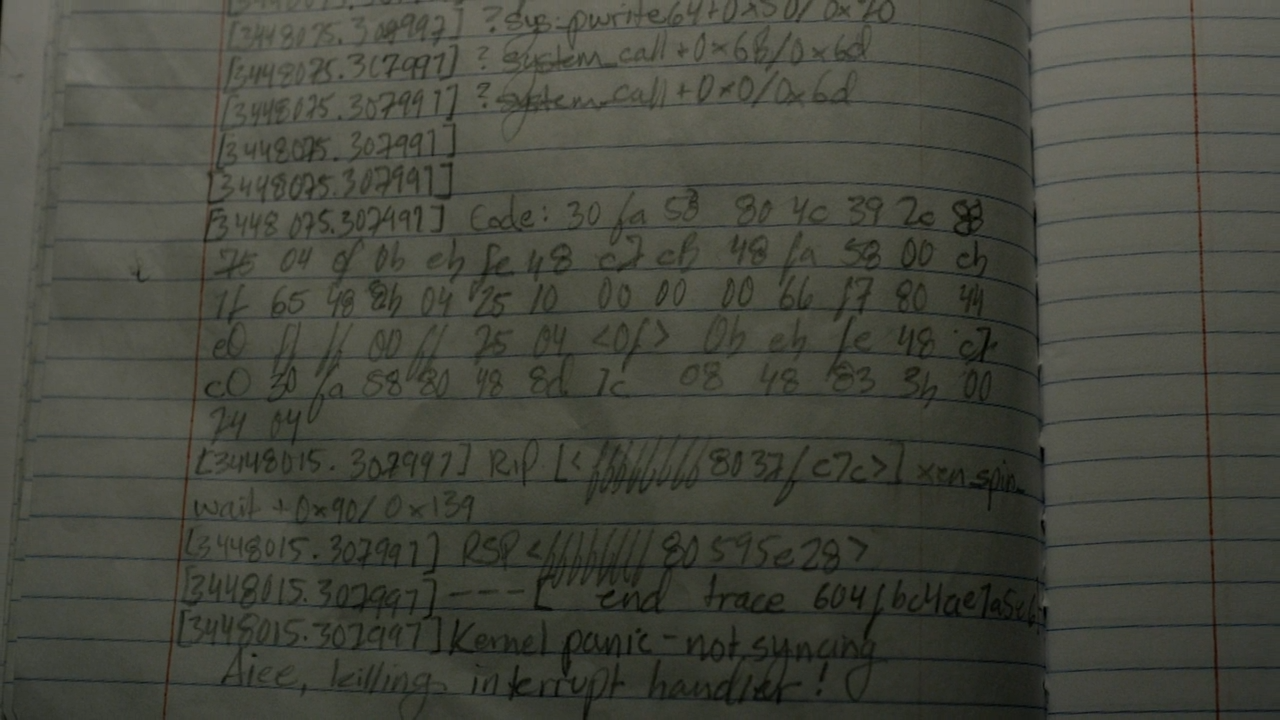 [3448075.307997] ? sys_pwrite64+0x50/0x70
[3448075.307997] ? system_call+0x68/0x6d
[3448075.307997] ? system_call+0x0/0x6d
[3448075.307997]
[3448075.307997]
[3448075.307997] Code: 30 fa 58 80 4c 39 2c
75 04 0f 0b eb fe 48 c7 c8 48 fa 58 00 eb
1f 65 48 8b 04 25 10 00 00 00 66 f7 80 44
e0 ff ff 00 ff 75 04 <0f> 0b eb fe 48 c7
c0 30 fa 58 80 48 8d 1c 08 48 83 3b 00
74 04
[3448015.307997] RIP [<ffffffff8037fc7c>] xen_spin_
wait+0x90/0x139
[3448015.307997] RSP <ffffffff80595e28>
[3448015.307997] ---[ end trace
[3448015.307997] Kernel panic - not syncing
Aiee, killing interrupt handler!